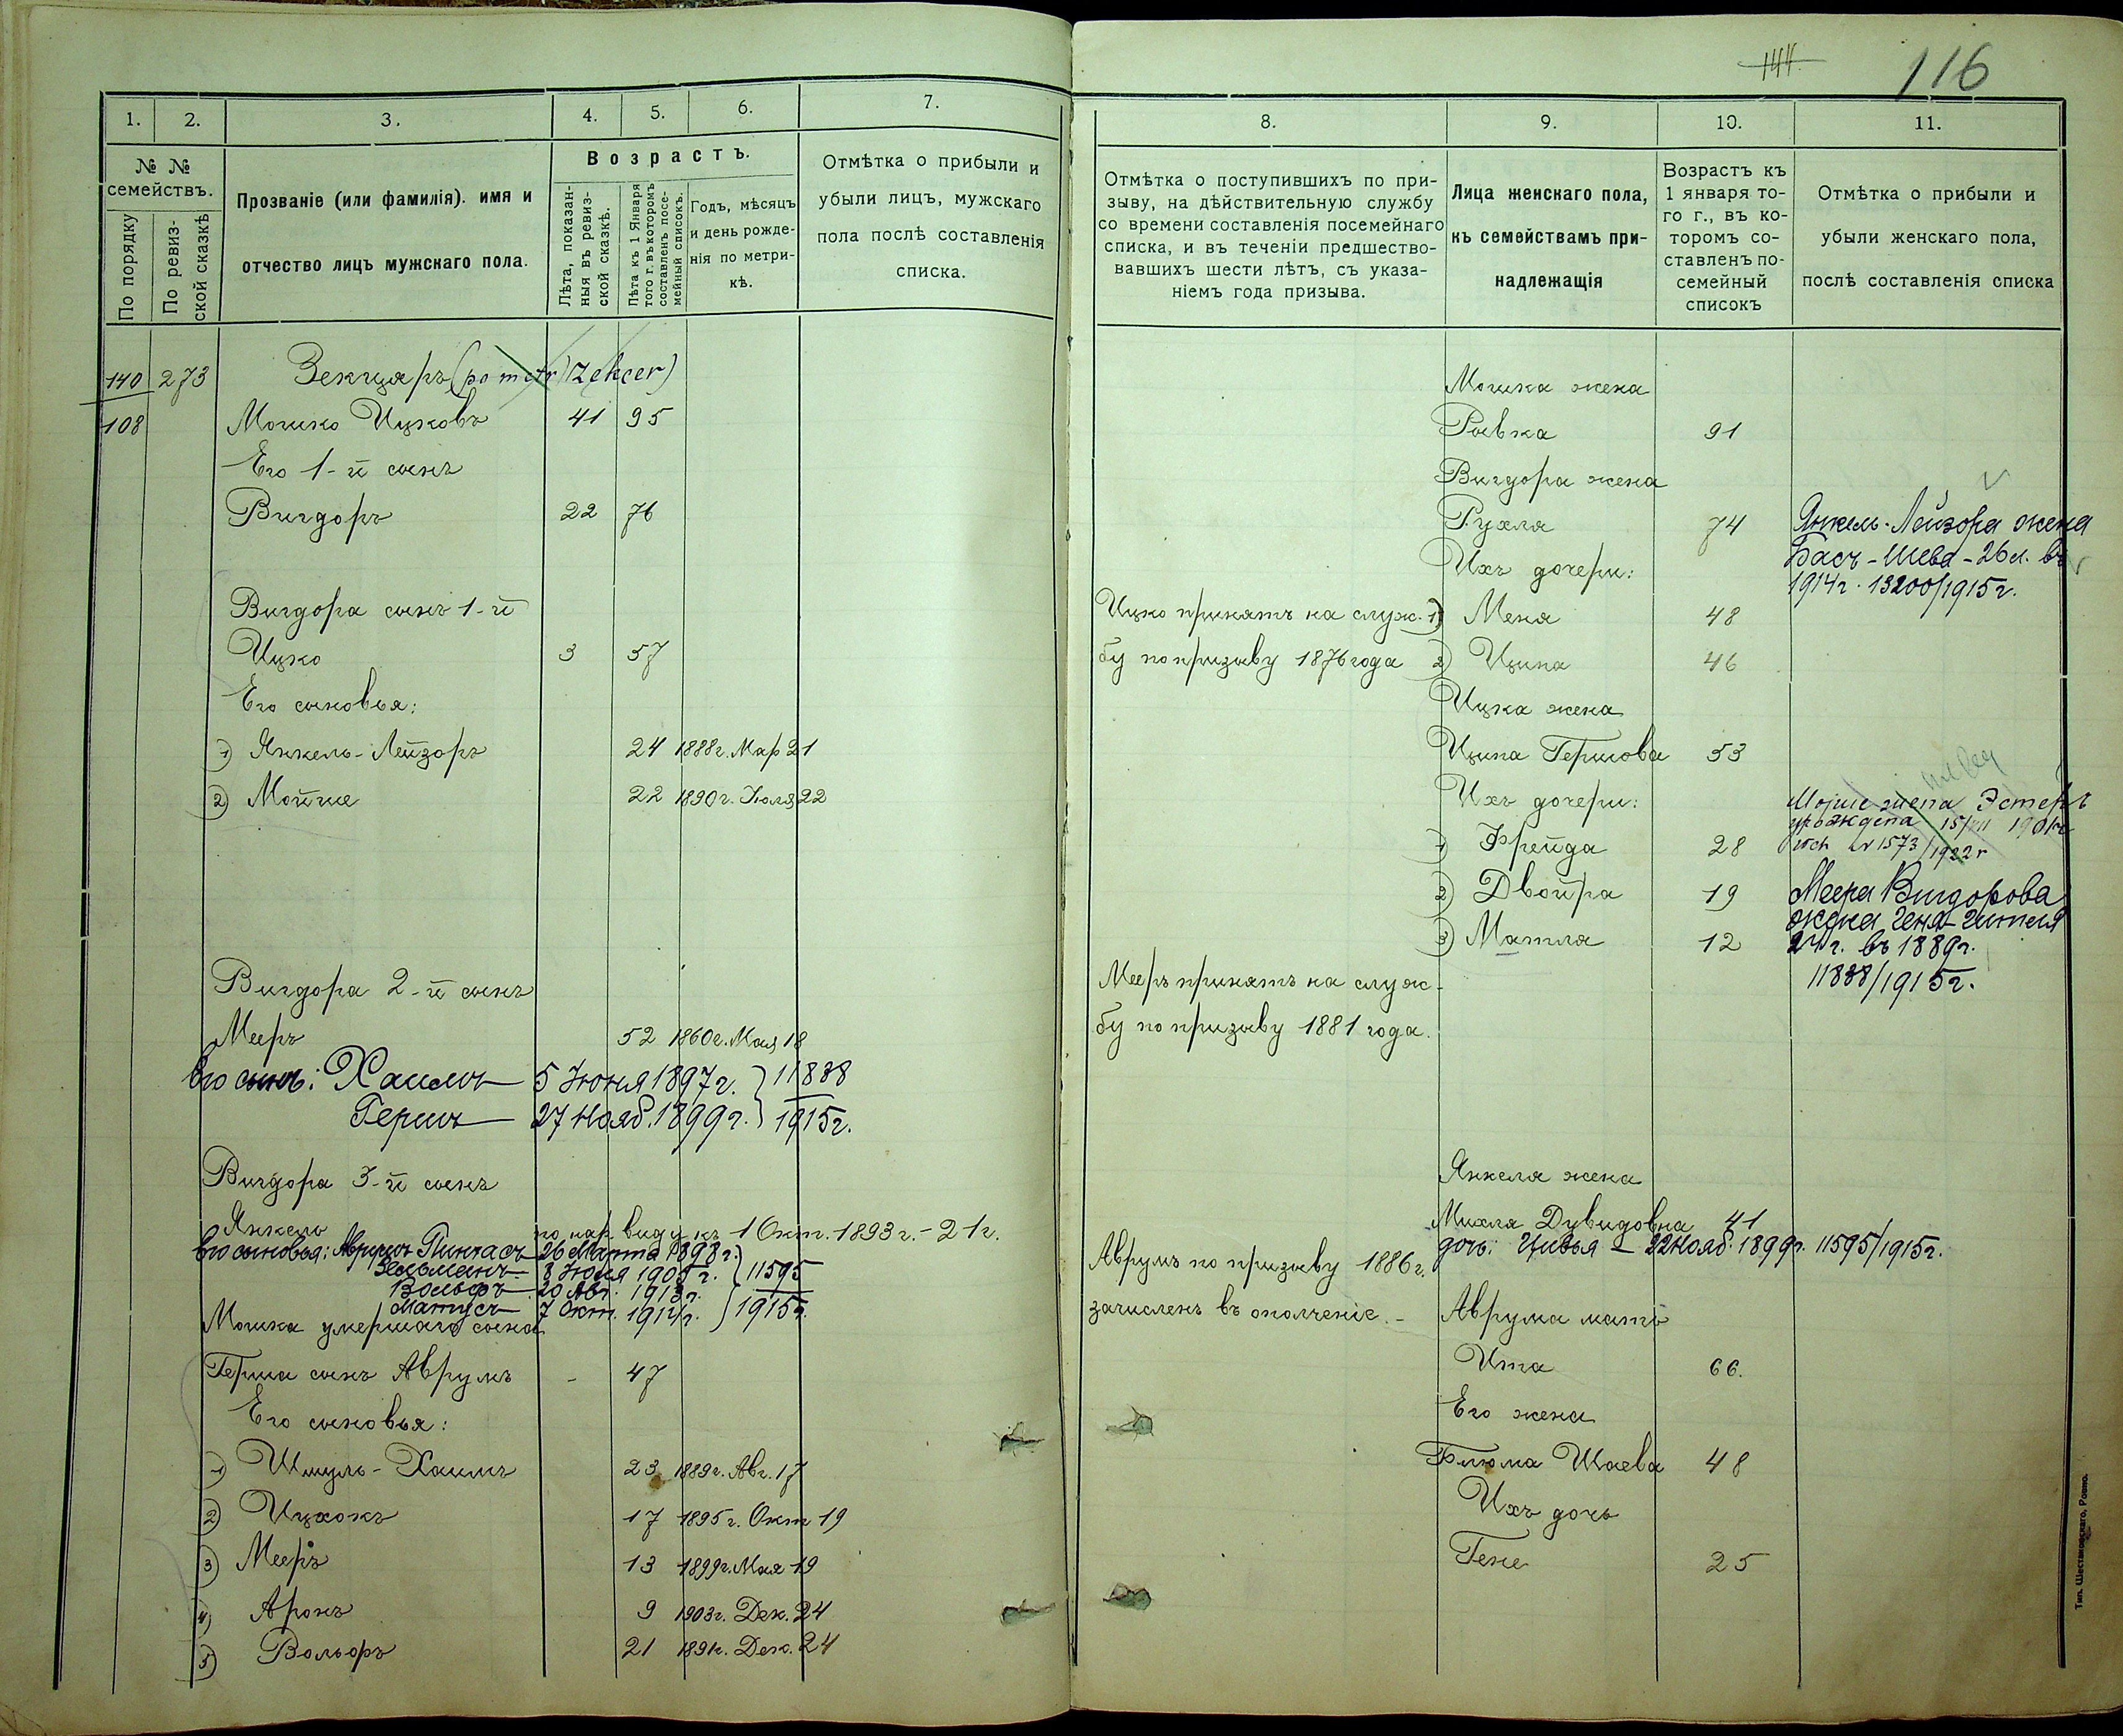 1.
2.
3.
4.
5.
6.
7.
№ №
семействъ.
По порядку
По ревиз-
ской сказкѣ
Прозваніе (или фамилія). имя и
отчество лицъ мужскаго пола.
Возрастъ.
Лѣта, показан-
ныя въ ревиз-
ской сказкѣ.
Лѣта къ 1 Января
того г. въ которомъ
составленъ посе-
мейный списокъ.
Годъ, мѣсяцъ
и день рожде-
нія по метри-
кѣ.
Отмѣтка о прибыли и
убыли лицъ, мужскаго
пола послѣ составленія
списка.
140 273 Зекцеръ (po metr) Zekcer)
108 Мошко Ицковъ 41 95
Его 1-й сынъ
Вигдоръ 22 76
Вигдора сынъ 1-й
Ицко 3 57
Его сыновья:
1) Янкель-Лейзоръ 24 1888г. Мар 21
2) Мойше 22 1890г. Іюля 22
Вигдора 2-й сынъ
Мееръ 52 1860г. Мая 18
Его сынъ: Хаимъ 5 Іюня 1897г. 11888
Гершъ 27 Нояб. 1899г. 1915г.
Вигдора 3-й сынъ
Янкель по нар. виду къ 1 Окт. 1893г. - 21г.
Его сыновья: Аврумъ Пинхасъ 26 Марта 1898г.
Зельманъ 8 Іюня 1905г. 11595
Вольфъ 20 Авг. 1913г.
Матусъ 7 Окт. 1914г. 1915г.
Мошка умершаго сына
Герша сынъ Аврумъ - 47
Его сыновья:
1) Шмуль-Хаимъ 23 1889г. Авг. 17
2) Ицхокъ 17 1895г. Окт 19
3) Мееръ 13 1899г. Мая 19
4) Аронъ 9 1903г. Дек. 24
5) Вольфъ 21 1891г. Дек. 24
144
116
8.
9.
10.
11.
Отмѣтка о поступившихъ по при-
зыву, на дѣйствительную службу
со времени составленія посемейнаго
списка, и въ теченіи предшество-
вавшихъ шести лѣтъ, съ указа-
ніемъ года призыва.
Лица женскаго пола,
къ семействамъ при-
надлежащія
Возрастъ къ
1 января то-
го г., въ ко-
торомъ со-
ставленъ по-
семейный
списокъ
Отмѣтка о прибыли и
убыли женскаго пола,
послѣ составленія списка
Мошка жена
Ривка 91
Вигдора жена
Рухля 74 Янкель-Лейзора жена
Бася-Шева - 26 л. въ
Ихъ дочери:
1914г. 13200/1915г.
Ицко принятъ на служ- 1) Меня 48
бу по призыву 1876 года 2) Ципа 46
Ицка жена
Ципа Гершова 53
Ихъ дочери:
Мојше жена Эстеръ
урождена 15/VII 1901г.
1) Фрейда 28 № 1573/1922г
2) Двойра 19 Меера Вигдорова
жена Геня-Гитля
3) Матля 12 24г. въ 1889г.
11888/1915г.
Мееръ принятъ на служ-
бу по призыву 1881 года.
Янкеля жена
Михля Дувидовна 41
дочь: Цивья - 22 Нояб. 1899г. 11595/1915г.
Аврумъ по призыву 1886г.
зачисленъ въ ополченіе. - Аврума мать
Ита 66.
Его жена
Блюма Шаева 48
Ихъ дочь
Гене 25
Тип. Шестаковскаго, Ровно.